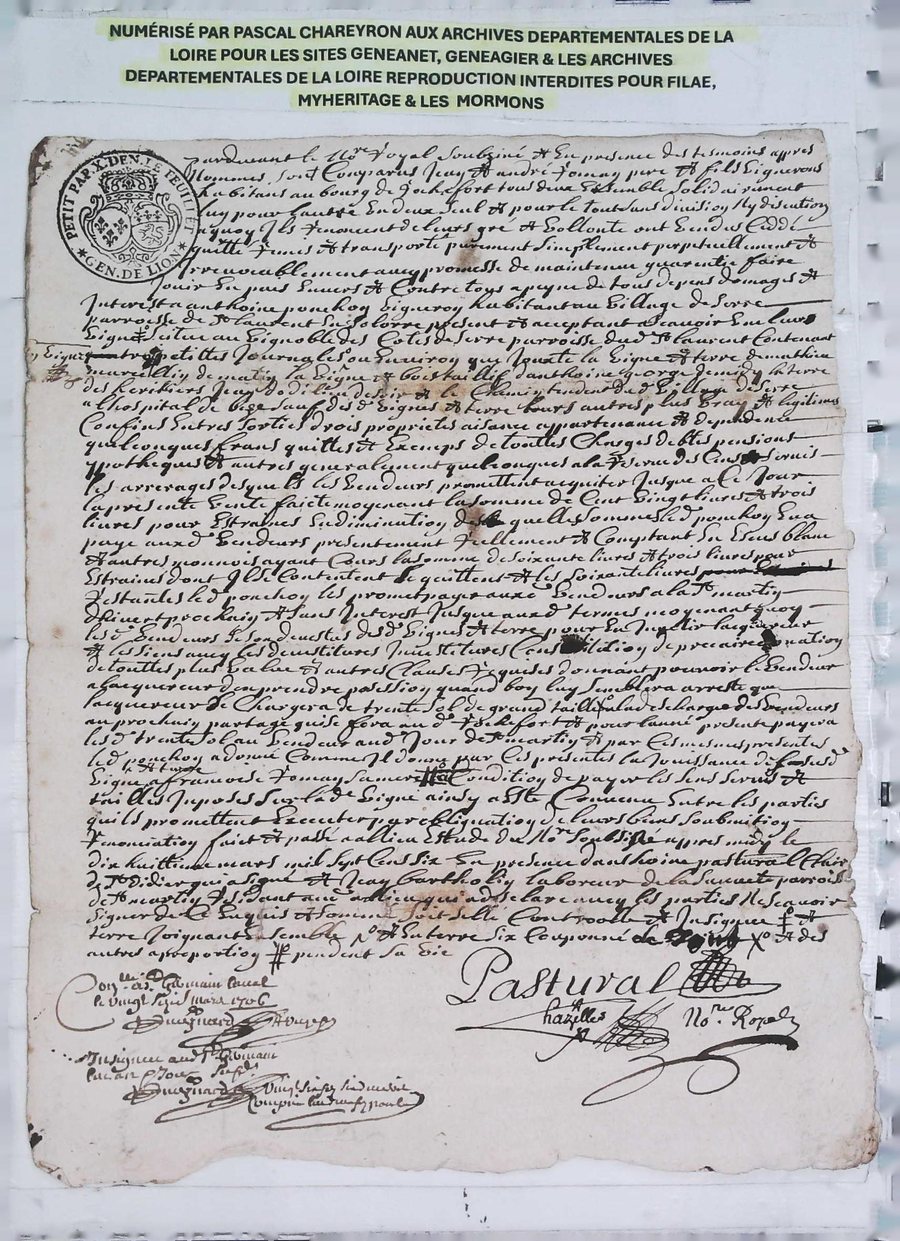 NUMÉRISÉ PAR PASCAL CHAREYRON AUX ARCHIVES DEPARTEMENTALES DE LA
LOIRE POUR LES SITES GENEANET, GENEAGIER & LES ARCHIVES
DEPARTEMENTALES DE LA LOIRE REPRODUCTION INTERDITES POUR FILAE,
MYHERITAGE & LES MORMONS
PETIT PAP. X. DEN. LE FEUILLET
GEN. DE LION
Pardevant le No.re Royal Soubziné & En presence des tesmoins appres
Nommes sont Comparus Jean & andré fomay pere & fils Vignerons
habitans au bourg de Rochefort tous deux Ensemble solidairement
lug pour lautre Un deux seul & pour le tout sans division Ny discution
Ils Renoncent de leurs gré & Vollonté ont Vendus Ceddé
quitté Remis & transporté purement simplement perpetuellement &
Irrevocablement aucq promesse de maintenue guarentie faire
Jouir En paix Envers & Contre tous a peyne de tous depens domages &
Interest a anthoine ponchon Vigneron habitant au Village de Serre
parroisse de St laurent En Solorre present & acceptant a scavoir Une leur
Vigne scituee au Vignoble des Costes de Serre parroisse dud St laurent Contenant
petittes Journales ou Environ que Jouxte la Vigne & terre de mathieu
de matin la Vigne & bois taillif danthoine george de midy la terre
des heritiers Jean de soir & le Chemin tendant dud Village de Serre
a lhospital de bize sauf desd Vignes & terre leurs autres plus Vray & legitimes
Confins Entres sorties drois proprietés aisance appartenance & dependence
quelconques frans quittes & Exemps de touttes Charges debtes pensions
ypotheques & autres generalement quelconques a la Reserve des Cens & servis
les arrerages desquels les Vendeurs promettent acquiter Jusque a Ce Jour
la presente Vente faicte moyenant la somme de Cent Vingt livres & trois
livres pour Estraines En diminution de quelles sommes led ponchon En a
payé auxd Vendeurs presentement Reellement & Comptant En Escus blanc
& autres monnois ayant Cours la somme de soixante livres & trois livres pour
Estraines dont Ils se Contentent le quittent & les soixante livres
Restantes led ponchon les promet payer auxd Vendeurs a la St martin
dhivert prochain & sans Interest Jusque auxd termes moyenant quoy
lesd Vendeurs se sont demestes desd Vignes & terre pour En Investir lacquereur
& les siens aucq les devestitures Investitures Constitution de precaire donation
de touttes plus Value & autres Clauses Requises donnant pouvoir le Vendeur
a lacquereur den prendre possession quand bon luy semblera arresté que
lacquereur se Chargera de trente sol de grand taille a la descharge des Vendeurs
au prochain partage qui se fera aud Rochefort & pour lanné presente payera
lesd trente sol au Vendeur aud Jour de St martin & par Ces mesmes presentes
led ponchon a donné Comme Il donne par Ces presentes la Jouissance de
Vigne & terre a francoise fomay sa mere Condition de payer les sens servis &
tailles Imposes sur lad Vigne ainsy a Esté Convenu Entre les parties
quils promettent Executer par obligation de leurs biens soubmition
Renonciation fait & passé Estude du No.re Soubsiné appres midy le
dix huittieme mars mil sept Cens six En presence danthoine pastural Clair
de St didier qui a signé & Jean barthollin laboreur de la parroisse
de St martin Residant qui a desclaré aucq les parties Ne scavoir
signer de Ce Enquis & sommé soit sellé Controollé & Insignué &
terre Joignant Ensemble & En terre six Couponné & des
autres a proportion pendent sa Vie
Pastural
Chazelles No.re Royal
Con.llé a St Germain Laval
le vingt mars 1706
Insignué aud St Germain